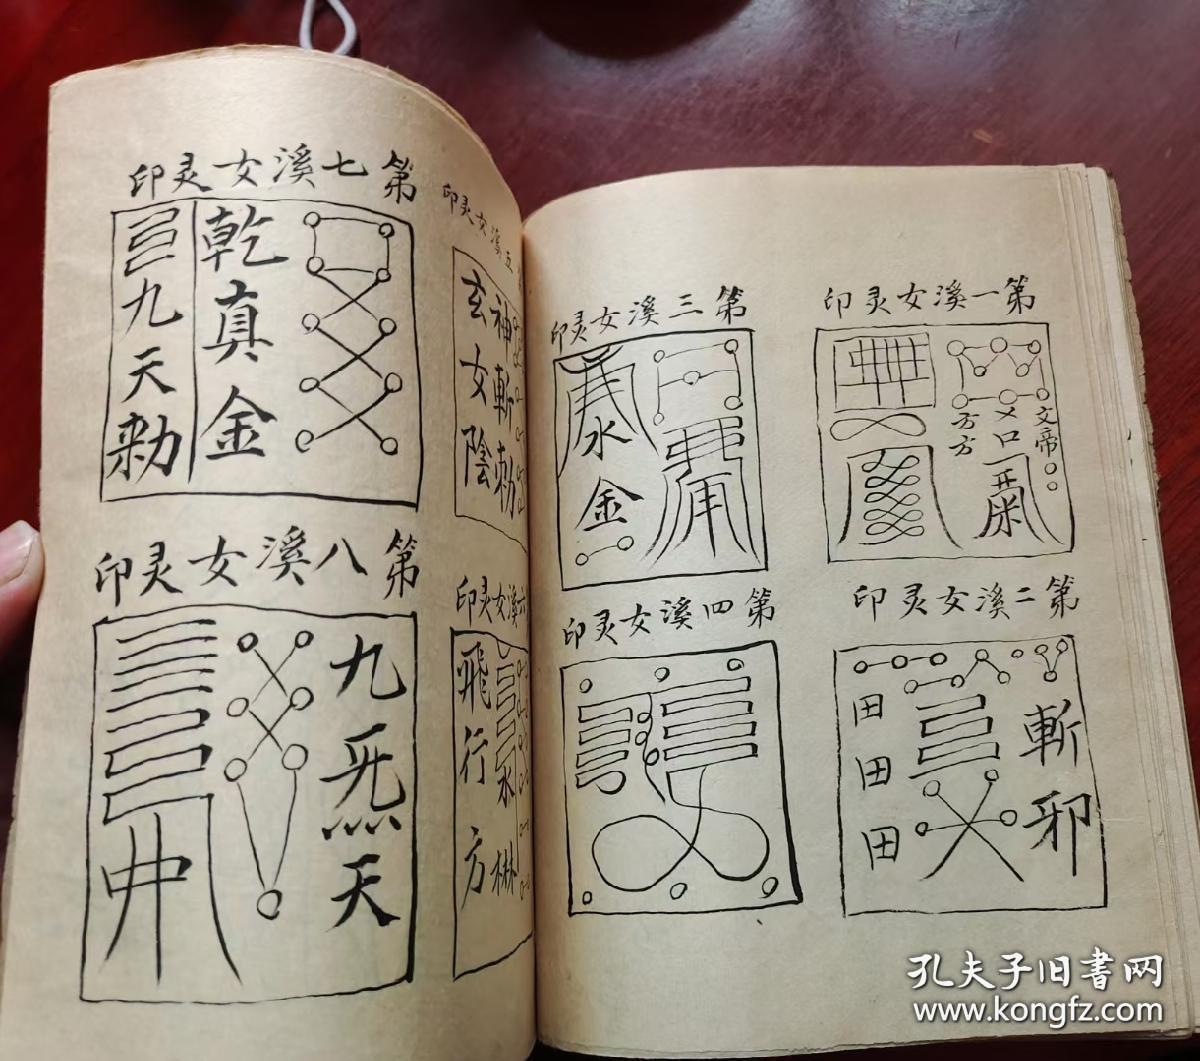 第一溪女灵印
文帝
㐅口
方方
第二溪女灵印
斬邪
田田田
第三溪女灵印
水金
第四溪女灵印
五溪女灵印
神斬勅
玄女陰
六溪女灵印
飛行方
第七溪女灵印
乾真金
九天勅
第八溪女灵印
九炁天
孔夫子旧書网
www.kongfz.com